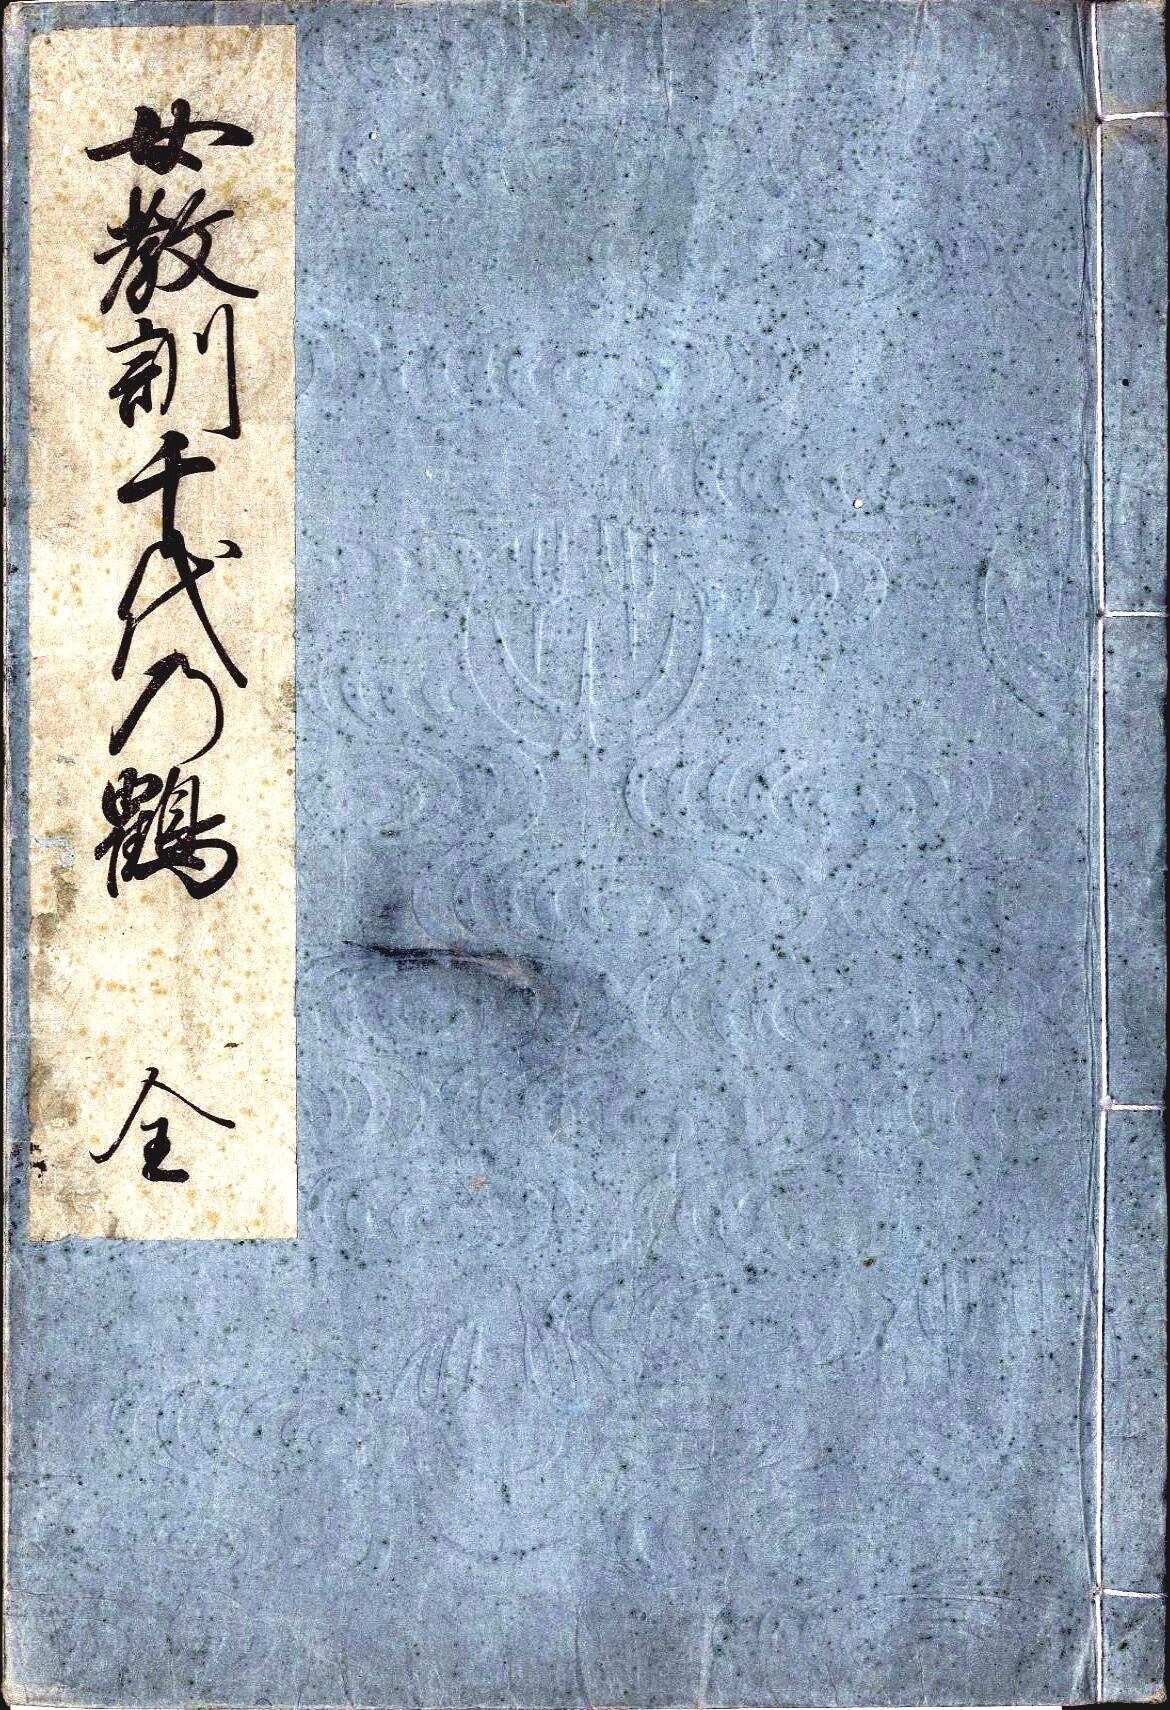 女教訓千代乃鶴 全